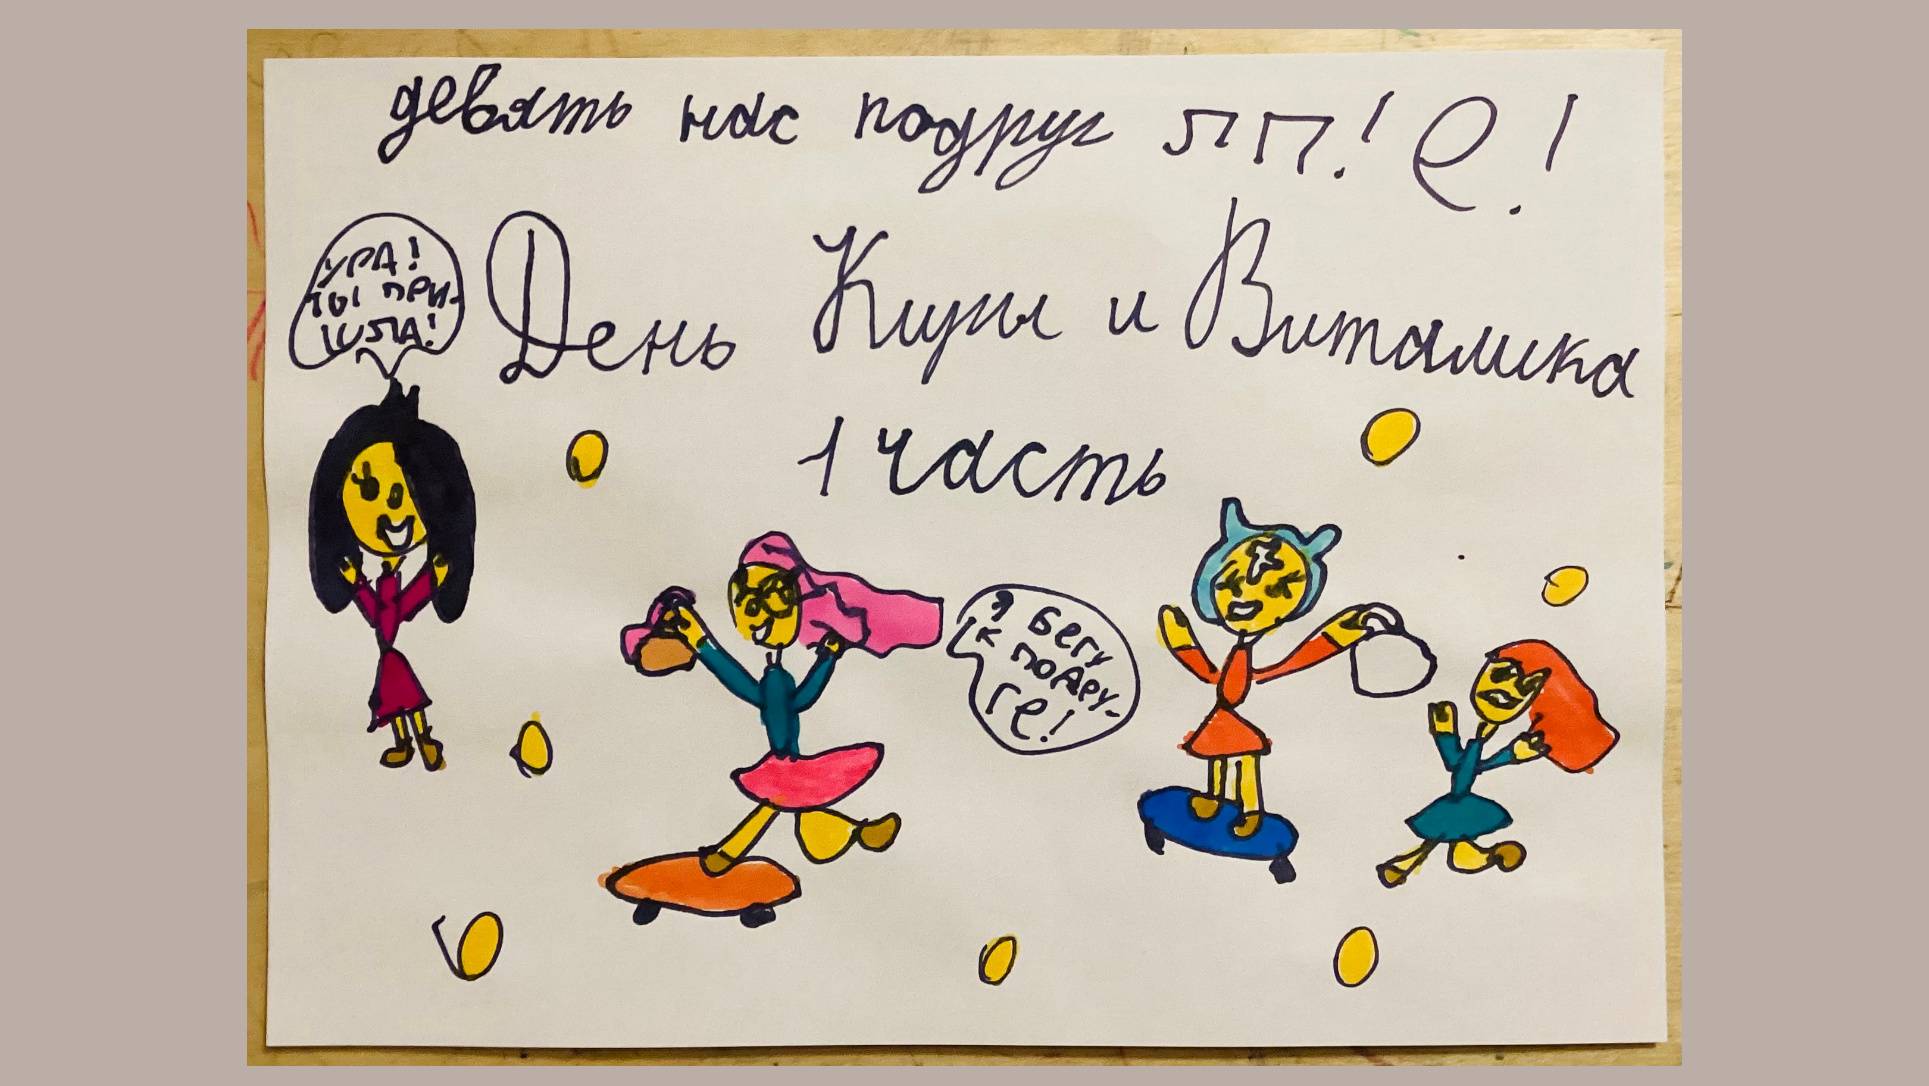 девять нас подруг ЛП! Е!
УРА!
ТЫ ПРИ-
ШЛА!
День Киры и Виташка
1 часть
Я БЕГУ
К ПОДРУ-
ГЕ!